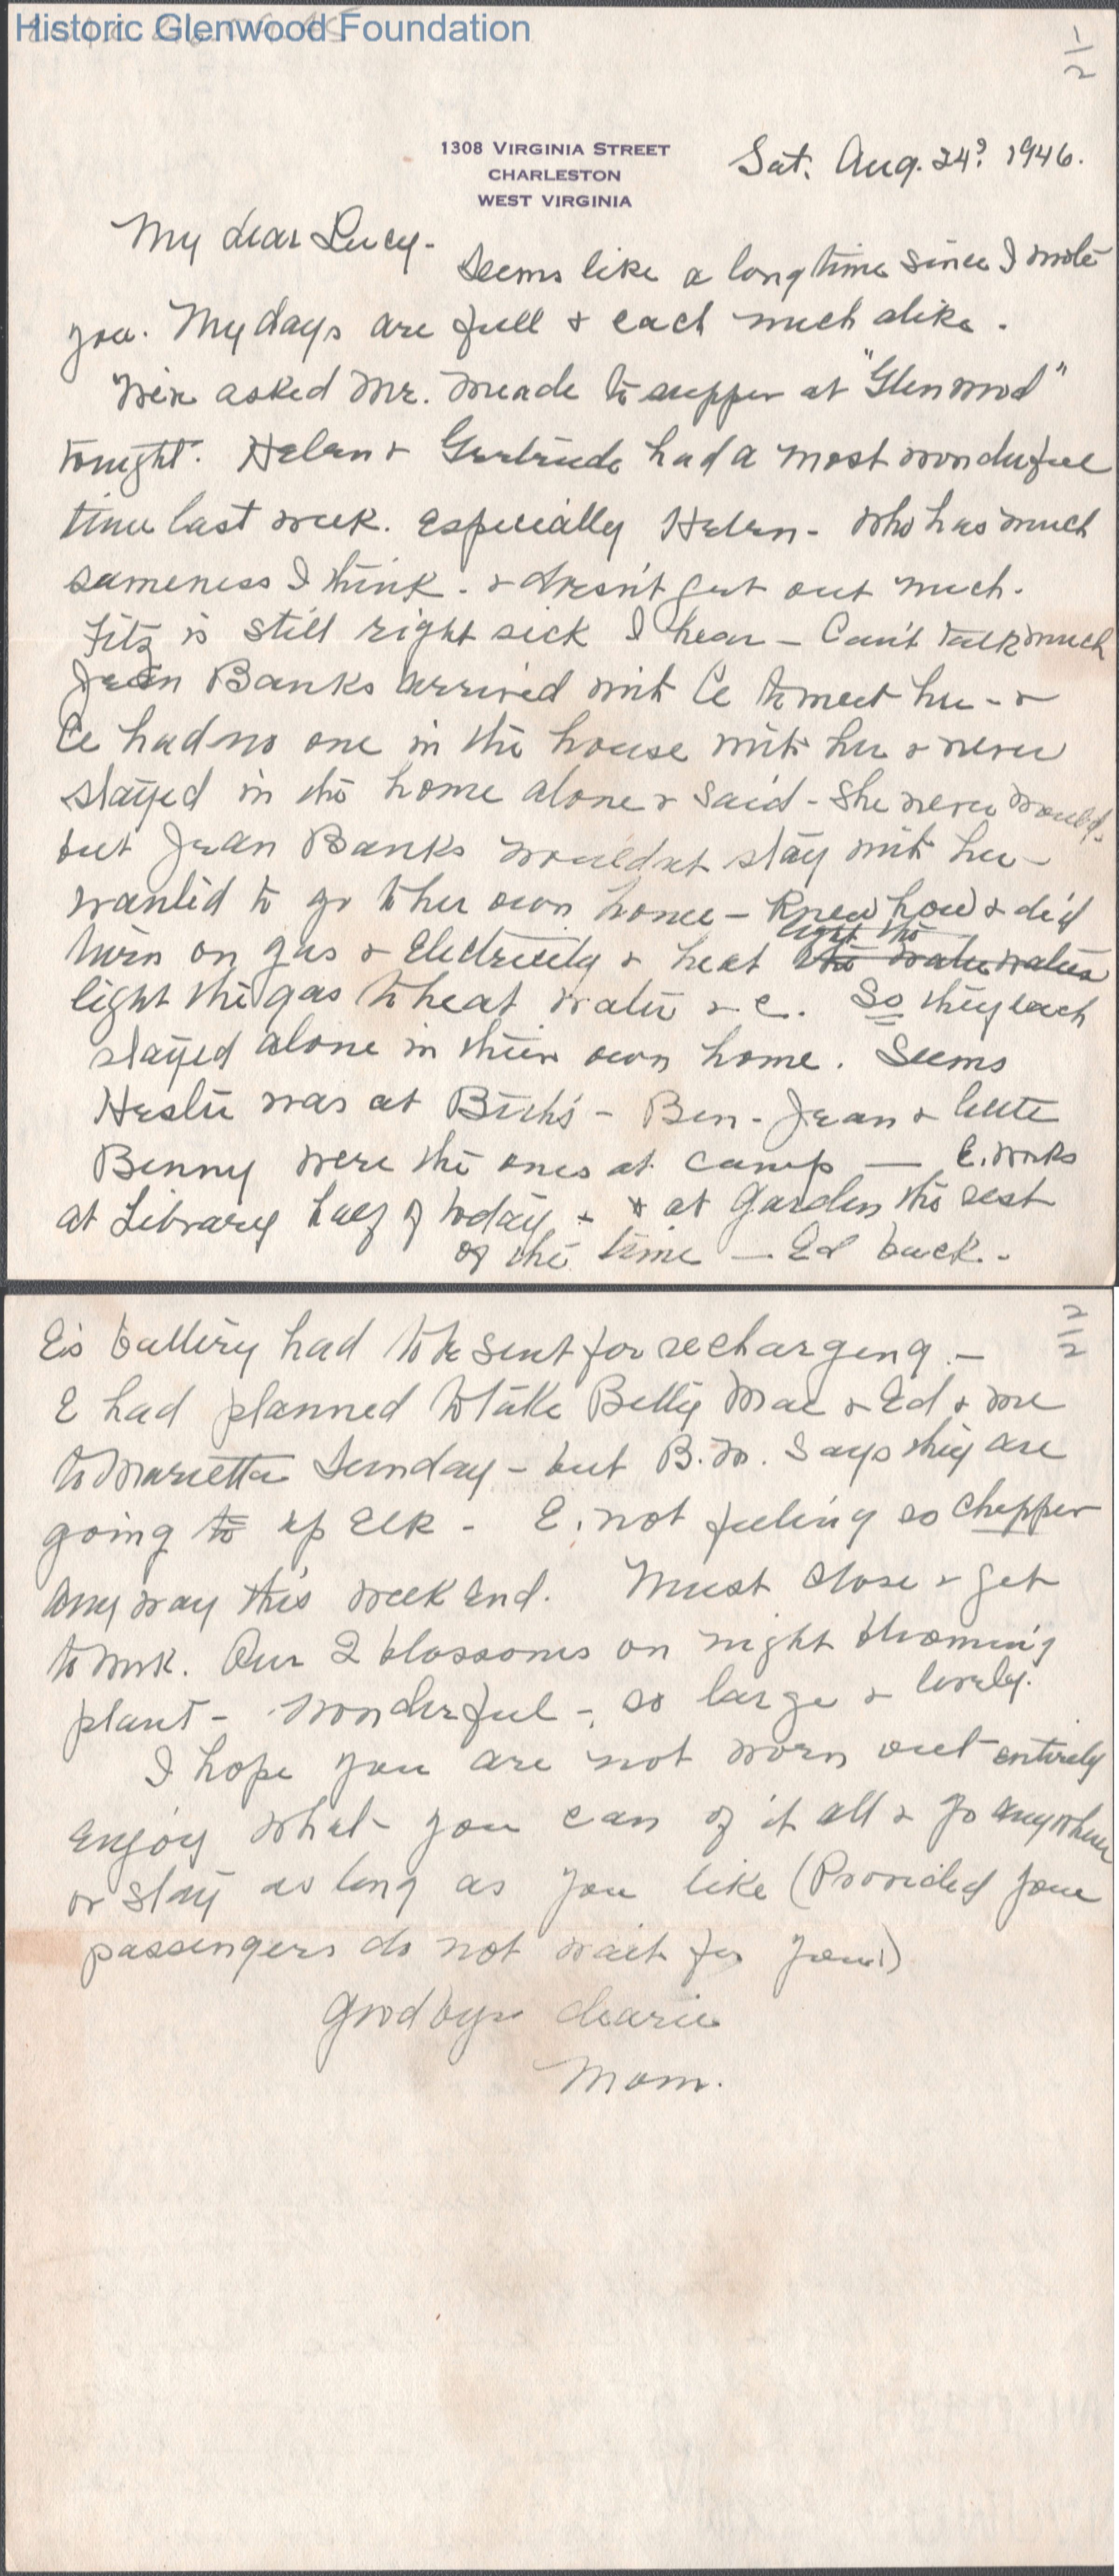 Historic Glenwood Foundation
1/2
1308 VIRGINIA STREET
CHARLESTON
WEST VIRGINIA
Sat. Aug. 24? 1946.
My dear Lucy-
Seems like a long time since I wrote
you. My days are full & each much alike.
asked Mr. Meade to supper at "Glenwood"
tonight. Helen & Gertrude had a most wonderful
time last week. Especially Helen - who has much
sameness I think - & doesn't get out much.
Fitz is still right sick I hear - Can't talk much
Jean Banks arrived with Ce to meet her - &
Ce had no one in the house with her & never
stayed in the home alone & said - she never would -
but Jean Banks wouldnt stay with her -
wanted to go to her own home - Knew how & did
light the
turn on gas & Electricity & heat the water water
light the gas to heat water &c. So they each
stayed alone in their own home. Seems
was at - Ben - Jean & little
Benny were the ones at camp — E. works
at Library half of today & at Garden the rest
of the time — Ed back. -
2/2
E's battery had to be sent for recharging. -
E had planned to take Betty Mac & Ed & me
to Marietta Sunday - but B.M. says they are
going to up Elk - E. not feeling so chipper
any way this week end. Must close & get
to work. Our 2 blossoms on night blooming
plant - wonderful -, so large & lovely.
I hope you are not worn out entirely
enjoy what you can of it all & go anywhere
or stay as long as you like (Provided your
passengers do not wait for you!)
Goodbye dearie
Mom.